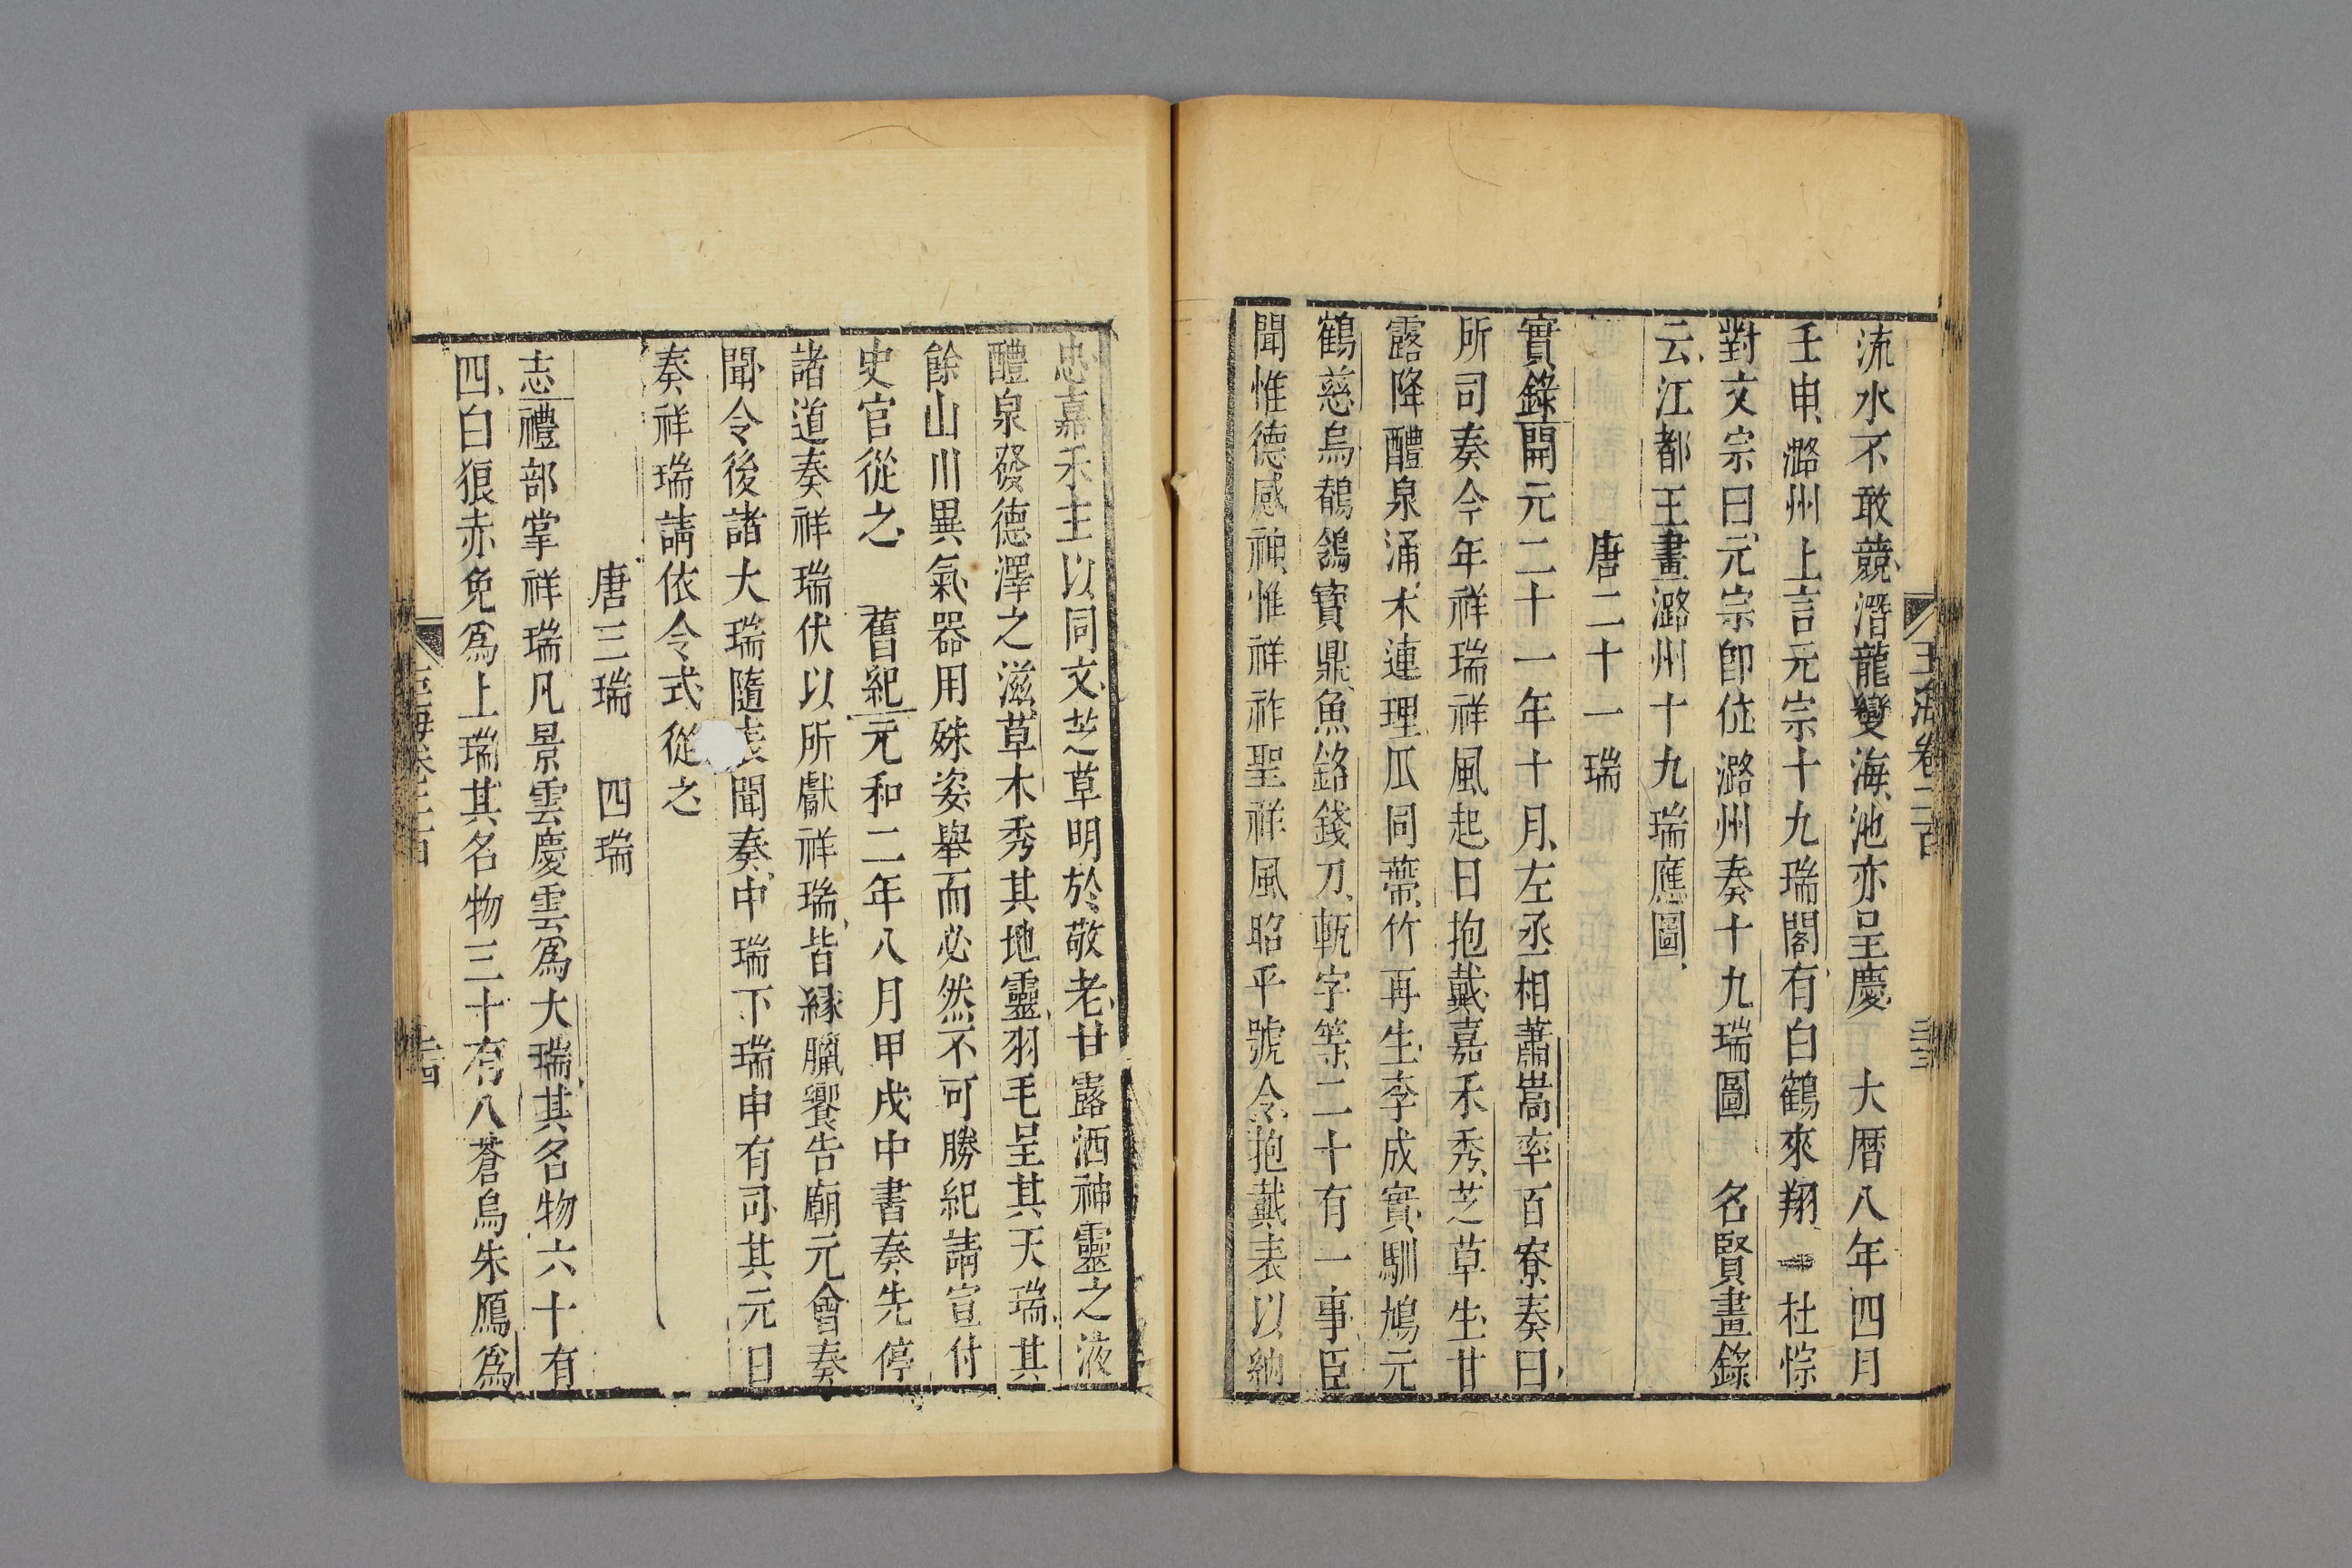 流水不敢競潛龍變海池亦呈慶　大曆八年四月
壬申潞州上言元宗十九瑞閣有白鶴來翔　杜悰
對文宗曰元宗卽位潞州奏十九瑞圖　名賢畫錄
云江都王畫潞州十九瑞應圖
唐二十一瑞
實錄開元二十一年十月左丞相蕭嵩率百寮奏曰
所司奏今年祥瑞祥風起日抱戴嘉禾秀芝草生甘
露降醴泉涌木連理瓜同蔕竹再生李成實馴鳩元
鶴慈烏鶺鴒寶鼎魚銘錢刀甎字等二十有一事臣
聞惟德感神惟祥祚聖祥風昭平號令抱戴表以納
忠嘉禾主以同文芝草明於敬老甘露洒神靈之液
醴泉發德澤之滋草木秀其地靈羽毛呈其天瑞其
餘山川異氣器用殊姿舉而必然不可勝紀請宣付
史官從之　舊紀元和二年八月甲戌中書奏先停
諸道奏祥瑞伏以所獻祥瑞皆緣臘饗告廟元會奏
聞令後諸大瑞隨表聞奏中瑞下瑞申有司其元日
奏祥瑞請依令式從之
唐三瑞　四瑞
志禮部掌祥瑞凡景雲慶雲爲大瑞其名物六十有
四白狼赤兔爲上瑞其名物三十有八蒼烏朱鴈爲